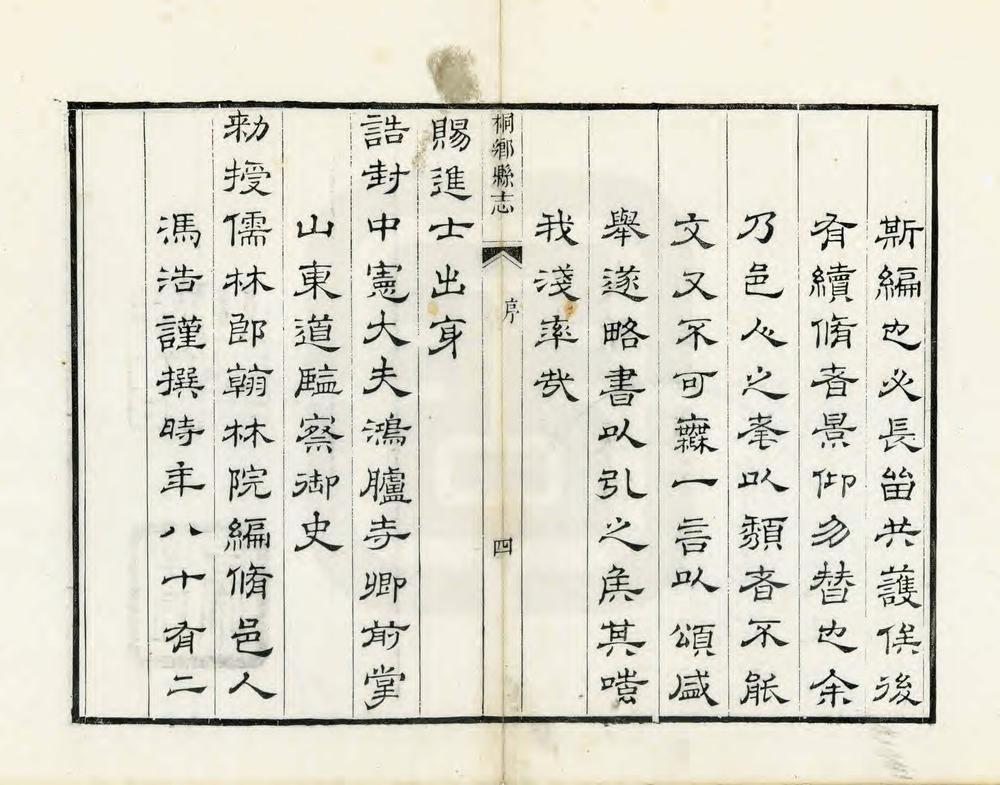 斯編也必長畱共護俟後
有續脩者景仰勿替也余
乃邑人之耄以頽者不能
文又不可無一言以頌盛
舉遂略書以引之矦其嗤
我淺率哉
桐鄉縣志
序
四
賜進士出身
誥封中憲大夫鴻臚寺卿前掌
山東道監察御史
勑授儒林郎翰林院編脩邑人
馮浩謹撰時年八十有二